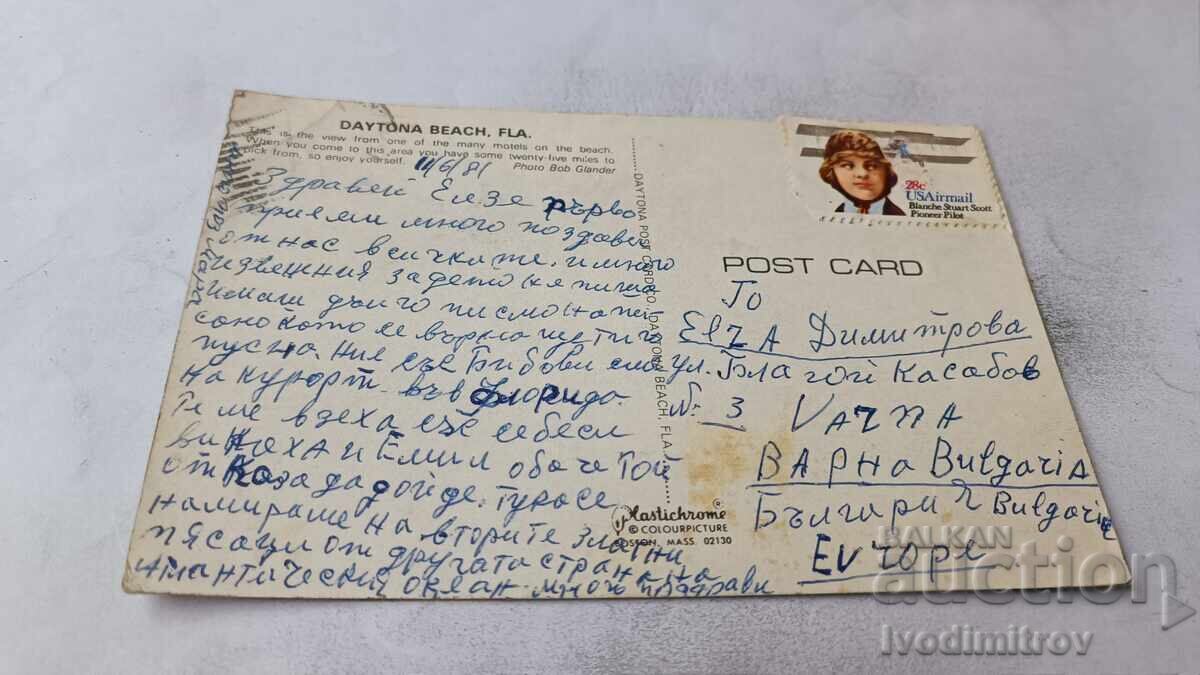 DAYTONA BEACH, FLA.
This is the view from one of the many motels on the beach.
When you come to this area you have some twenty-five miles to
pick from, so enjoy yourself. Photo Bob Glander
11/6/81
Здравей Елзе първо
приеми много поздрави
от нас всичките. и много
извенения за дето не писа
имаш дълго писмо
което се върна
пусна. Ние със Бибови сме
на курорт във Флорида.
Те ме взеха със себеси
викаха и Емил обаче той
отказа да дойде. Тука се
намираме на вторите Златни
пясаци от другата страна на
Атлантически океан. много поздрави
DAYTONA POST CARD CO., DAYTONA BEACH, FLA.
Plastichrome ®
© COLOURPICTURE
BOSTON, MASS. 02130
28c
USAirmail
Blanche Stuart Scott
Pioneer Pilot
POST CARD
То
Elza Димитрова
ул. Благой Касабов
№ 3
Varna
ВАРНА Bulgaria
България Bulgaria
Europe
BALKAN
auction
Ivodimitrov